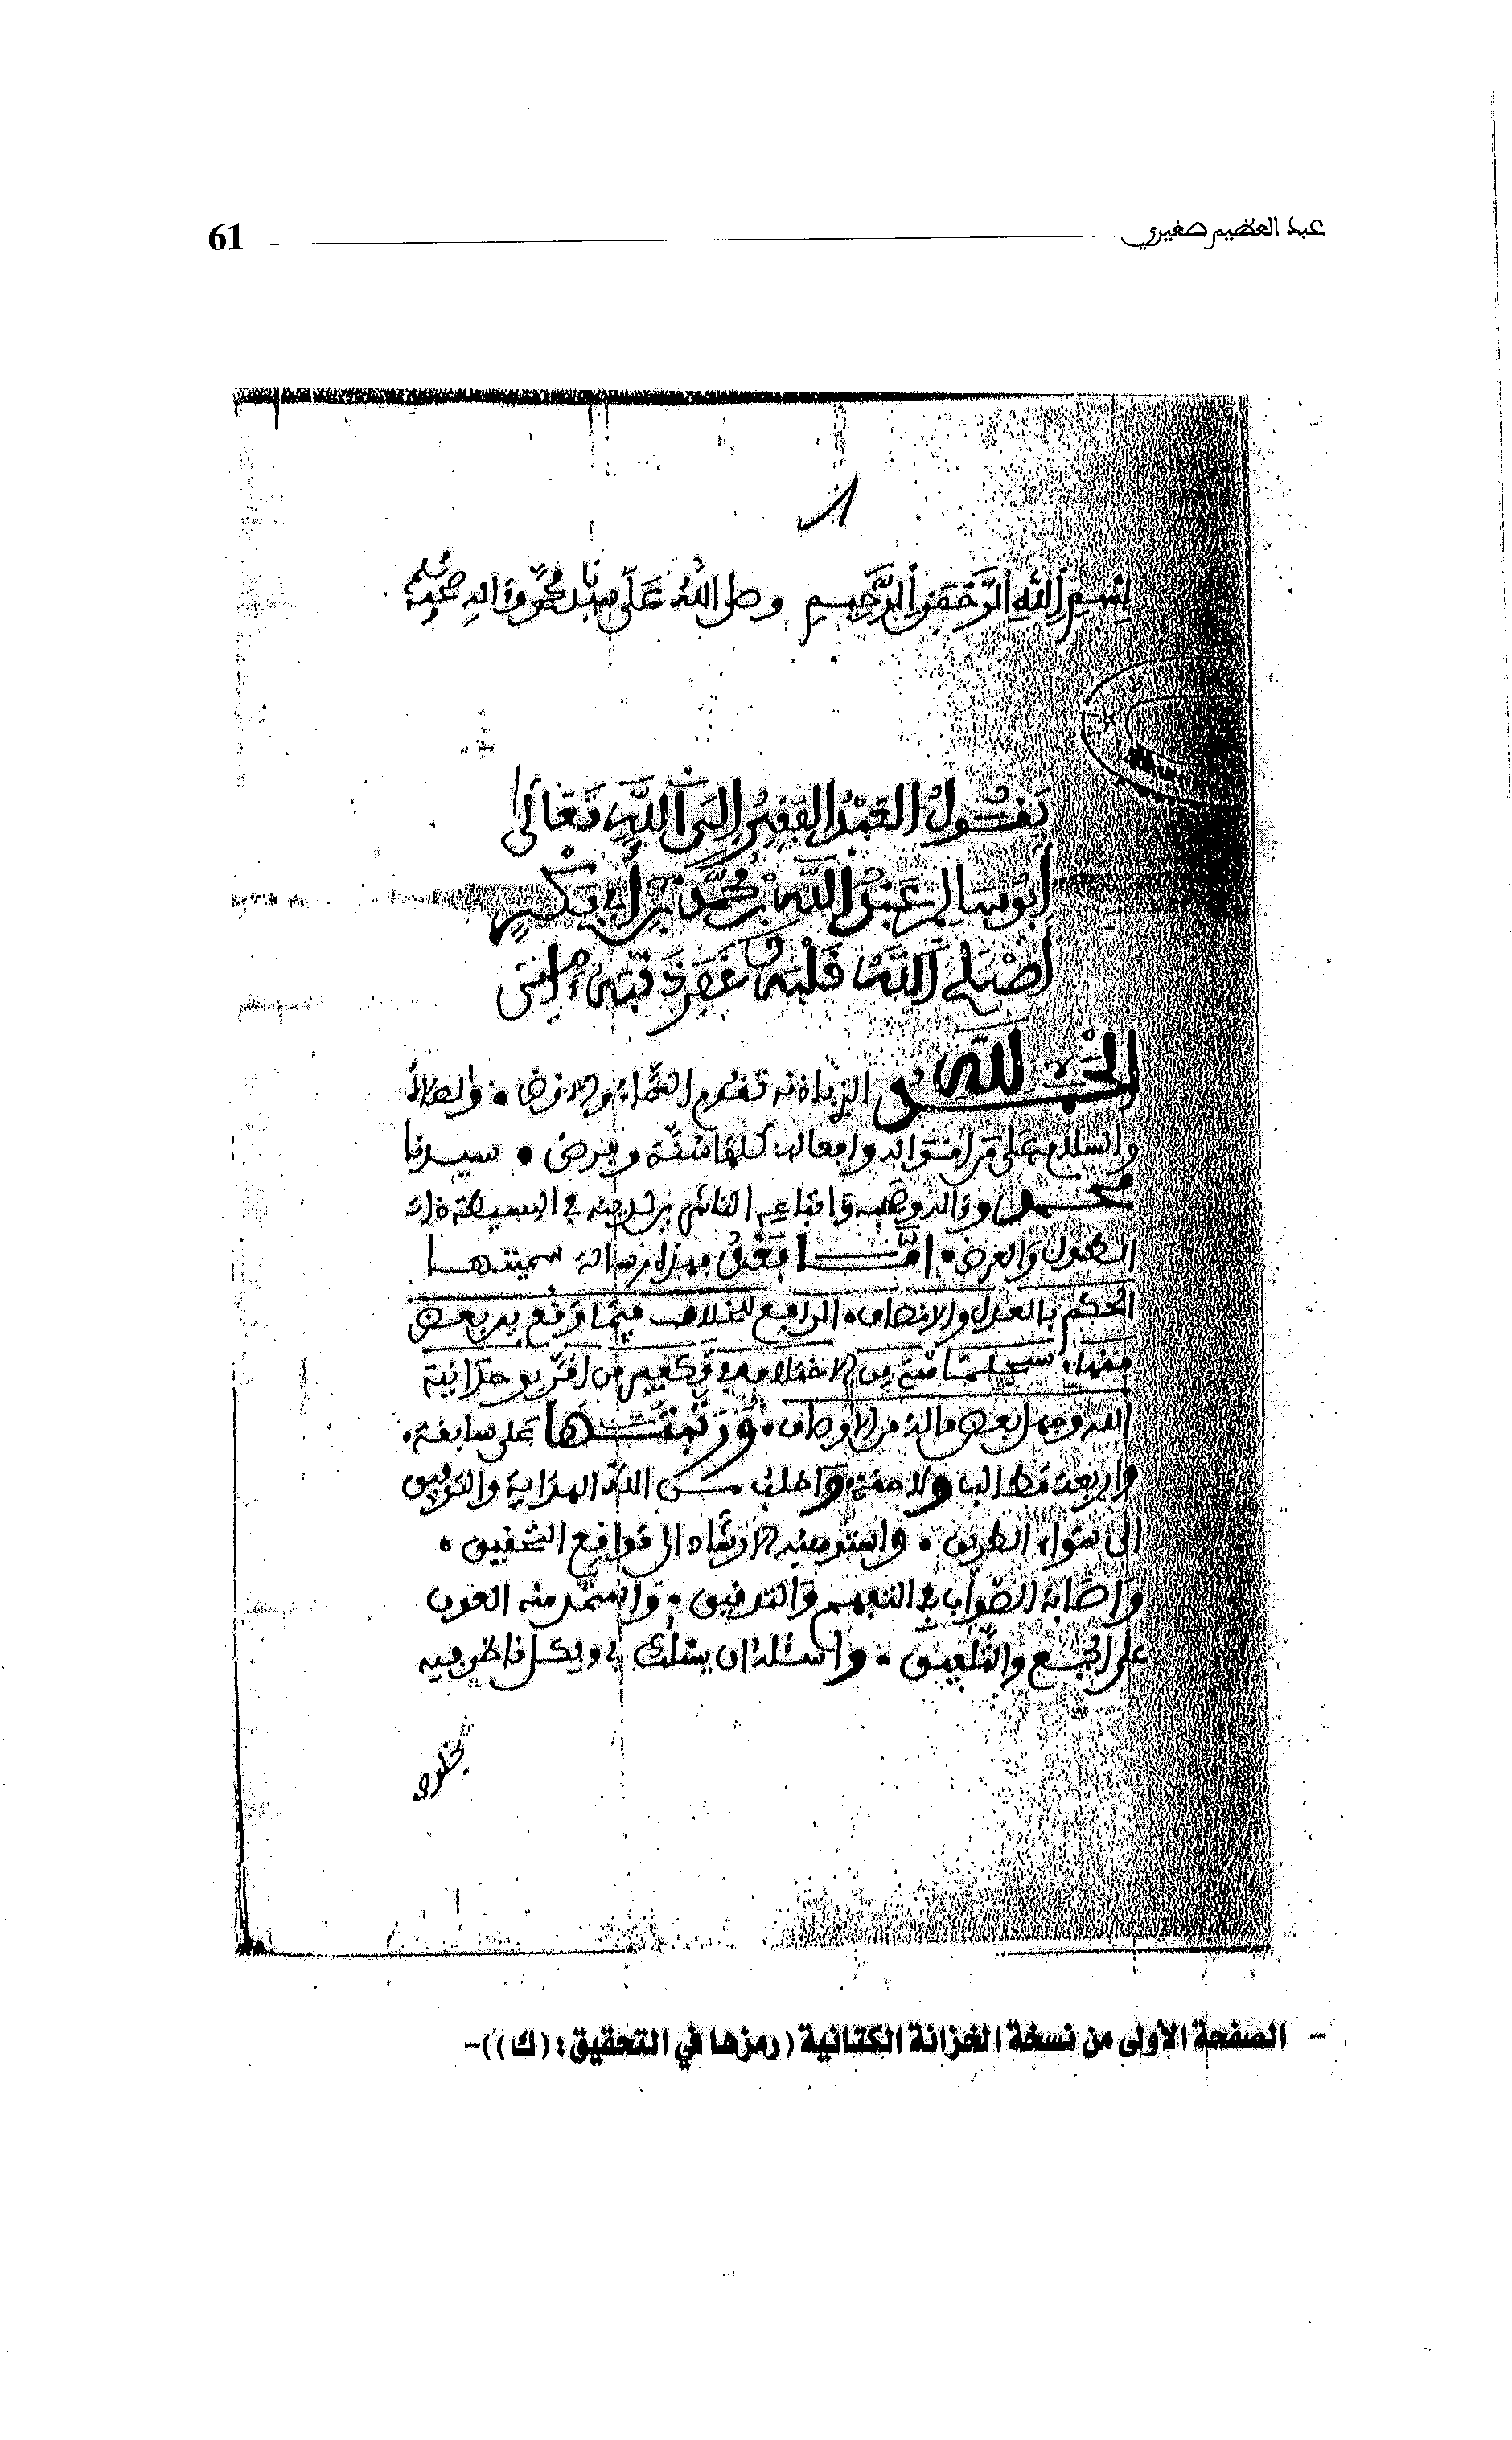 عبد العظيم صغيري 61
بسم الله الرحمن الرحيم وصلى الله على سيدنا محمد وءاله وصحبه وسلم
يقول العبد الفقير إلى الله تعالى
أبو سالم عبد الله بن محمد بن أبي بكر
أصلح الله قلبه وغفر ذنبه ءامين
الحمد لله الذي باذنه تقوم السماء والارض • والصلاة
والسلام على من اقواله وافعاله كلها سنة وفرض • سيدنا
محمد وءاله وصحبه واتباعه الناشرين لدينه في البسيطة ذات
الطول والعرض • أما بعد فهذه رسالة سميتها
الحكم بالعدل والانصاف • الرافع للخلاف فيما وقع بين بعض
فقهاء سجلماسة من الاختلاف في تكفير من اقر بوحدانية
الله وجهل بعض ما له من الاوصاف • ورتبتها على سابقة •
واربعة مطالب ولاحقة • واطلب من الله الهداية والتوفيق
الى سواء الطريق • واستوهبه الارشاد الى مواقع التحقيق •
واصابة الصواب في التفهيم والتدقيق • واستمد منه العون
على الجمع والتلفيق • واسئله ان يسلك بي وبكل ناظر فيه
- الصفحة الأولى من نسخة الخزانة الكتانية (رمزها في التحقيق: (ك))-